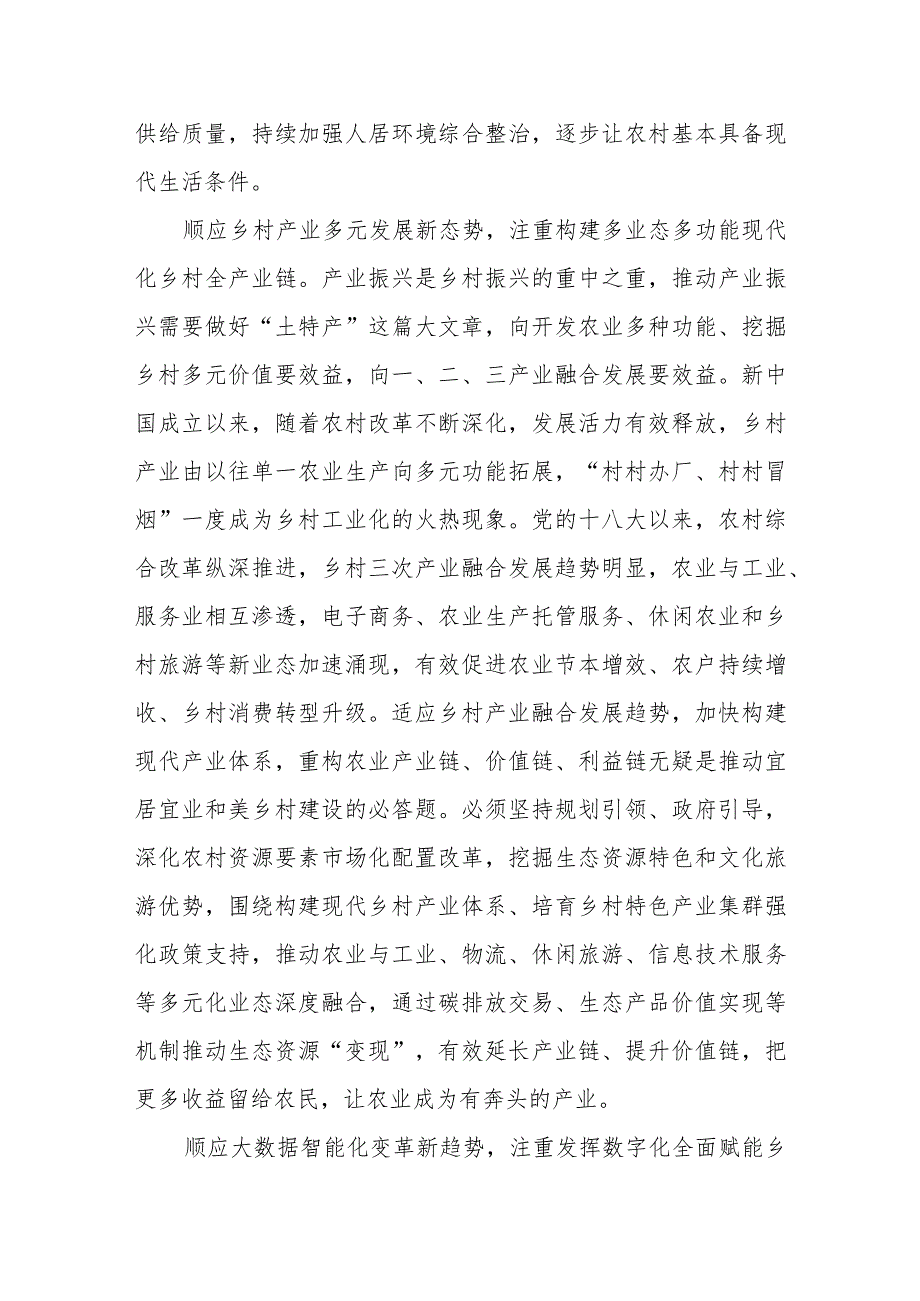 供给质量，持续加强人居环境综合整治，逐步让农村基本具备现
代生活条件。
顺应乡村产业多元发展新态势，注重构建多业态多功能现代
化乡村全产业链。产业振兴是乡村振兴的重中之重，推动产业振
兴需要做好“土特产”这篇大文章，向开发农业多种功能、挖掘
乡村多元价值要效益，向一、二、三产业融合发展要效益。新中
国成立以来，随着农村改革不断深化，发展活力有效释放，乡村
产业由以往单一农业生产向多元功能拓展，“村村办厂、村村冒
烟”一度成为乡村工业化的火热现象。党的十八大以来，农村综
合改革纵深推进，乡村三次产业融合发展趋势明显，农业与工业、
服务业相互渗透，电子商务、农业生产托管服务、休闲农业和乡
村旅游等新业态加速涌现，有效促进农业节本增效、农户持续增
收、乡村消费转型升级。适应乡村产业融合发展趋势，加快构建
现代产业体系，重构农业产业链、价值链、利益链无疑是推动宜
居宜业和美乡村建设的必答题。必须坚持规划引领、政府引导，
深化农村资源要素市场化配置改革，挖掘生态资源特色和文化旅
游优势，围绕构建现代乡村产业体系、培育乡村特色产业集群强
化政策支持，推动农业与工业、物流、休闲旅游、信息技术服务
等多元化业态深度融合，通过碳排放交易、生态产品价值实现等
机制推动生态资源“变现”，有效延长产业链、提升价值链，把
更多收益留给农民，让农业成为有奔头的产业。
顺应大数据智能化变革新趋势，注重发挥数字化全面赋能乡